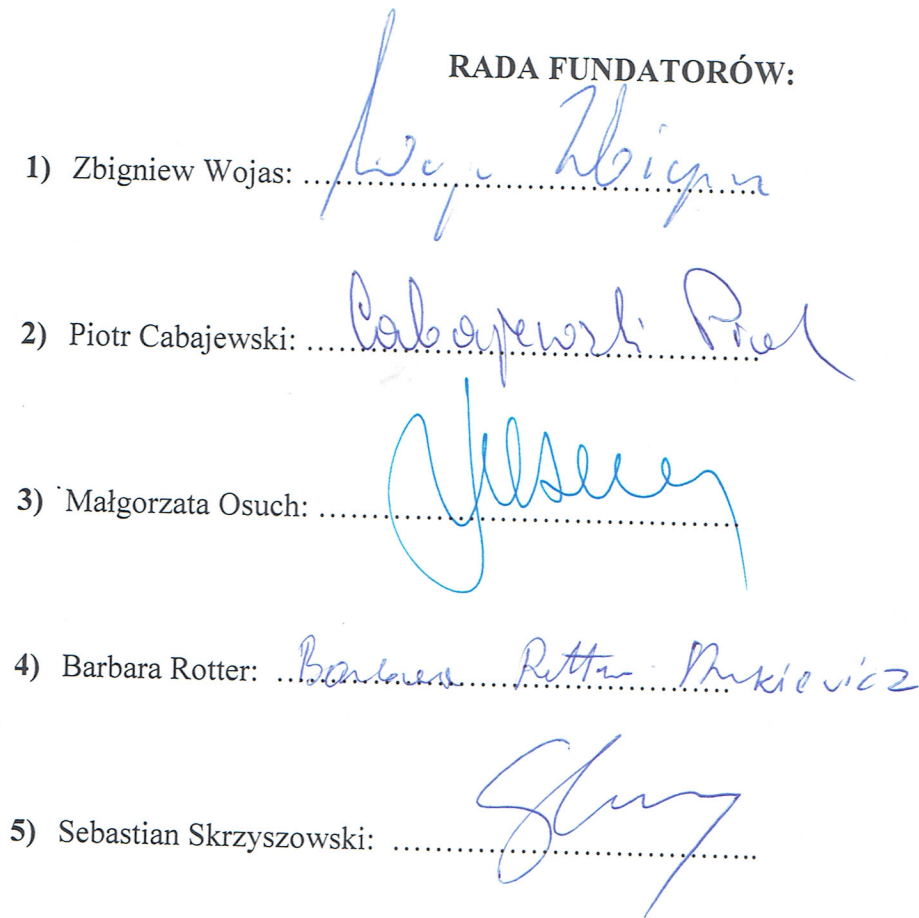 RADA FUNDATORÓW:
1) Zbigniew Wojas: ........ Wojas Zbigniew
2) Piotr Cabajewski: ........ Cabajewski Piotr
3) Małgorzata Osuch: ........
4) Barbara Rotter: ........ Barbara Rotter-
5) Sebastian Skrzyszowski: ........